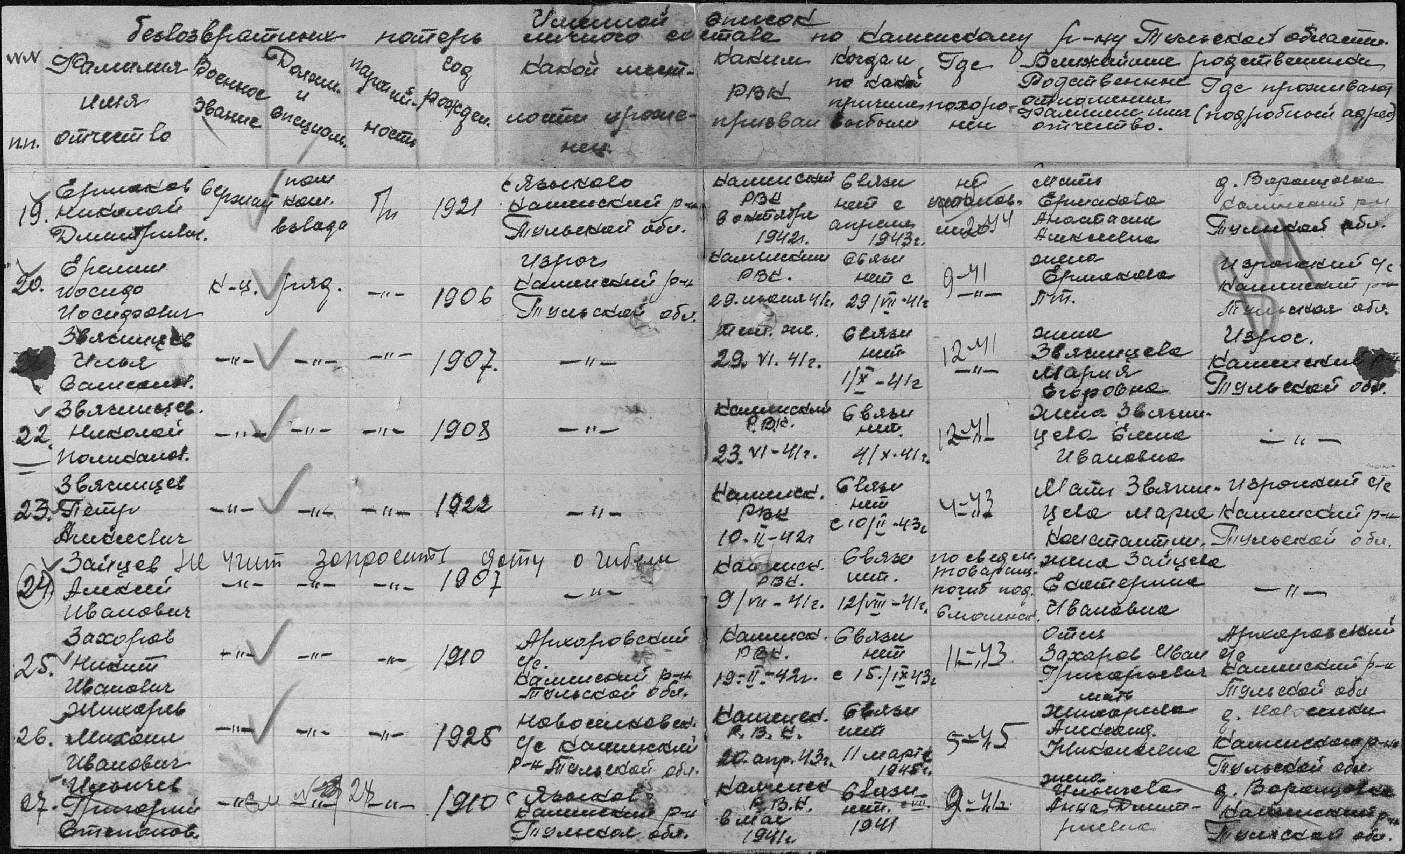 Именной список
безвозвратных потерь личного состава по Каменскому р-ну Тульской области.
№№ п.п.
Фамилия имя отчество
Военное звание
Должн. и специальн.
партийность
год рожден.
какой местности уроженец
Каким РВК призван
Когда и по какой причине выбыл
Где похоронен
Ближайшие родственники
Родственные отношения Фамилия имя отчество.
Где проживают (подробный адрес)
19. Ермаков Николай Дмитриевич.
сержант
пом ком. взвода
б/п
1921
с Языково Каменский р-н Тульской обл.
Каменский РВК
в октябре 1942г.
Связи нет с апреля 1943г.
мать Ермакова Анастасия Алексеевна
д. Воронцовка Каменский р-н Тульской обл.
20.
Иосифович
к-ц.
ряд.
-"-
1906
Изрог Каменский р-н Тульской обл.
Каменский РВК.
29. июня 41г.
Связи нет с 29/VII-41г.
9-41
-"-
жена Ермакова
Изрогский с/с Каменский р-н Тульская обл.
Звягинцев Илья
-"-
-"-
-"-
1907.
-"-
29. VI. 41г.
Связи нет 1/X-41г
12-41
-"-
жена Звягинцева Мария Егоровна
Изрог. Каменский р-н Тульской обл.
22. Звягинцев. Николай
-"-
-"-
-"-
1908
-"-
Каменский Р.В.К.
23. VI-41г.
Связи нет. 4/X-41г.
12-41
жена Звягинцева Елена Ивановна
-"-
23. Звягинцев Петр Алексеевич
-"-
-"-
-"-
1922
-"-
Каменск. РВК
10-II-42г
Связи нет с 10/II-43г
4-43
Мать Звягинцева Мария Константин.
Изрогский с/с Каменский р-н Тульской обл.
24. Зайцев Алексей Иванович
не чит запросить дату о гибели
-"-
-"-
-"-
1907
-"-
Каменск. РВК.
9/VII-41г.
Связи нет. 12/VIII-41г.
по сведен. товарищ. погиб под. Смоленск.
жена Зайцева Екатерина Ивановна
-"-
25. Захаров Никит Иванович
-"-
-"-
-"-
1910
Архаровский с/с. Каменский р-н Тульской обл.
Каменск. Р.В.К.
19-II-42г.
Связи нет с 15./IX 43г
11-43
Отец Захаров Иван Григорьевич
Архаровский с/с Каменский р-н Тульской обл
26. Жихарев Михаил Иванович
-"-
-"-
-"-
1925
Новоселковск. с/с Каменский р-н Тульской обл.
Каменск. Р.В.К.
20. апр. 43г.
Связи нет 11 марта 1945г.
5-45
мать Жихарева Александ. Николаевна
Каменского р-на Тульской обл
27. Ильичев Григорий Степанов.
см № 24
1910
с Языково Каменский р-н Тульская обл.
Каменск Р.В.К.
в мае 1941г.
Связи нет. 1941
9-41.
жена Ильичева Анна Дмитриевна
д. Воронцовка Каменский р-н Тульской обл.